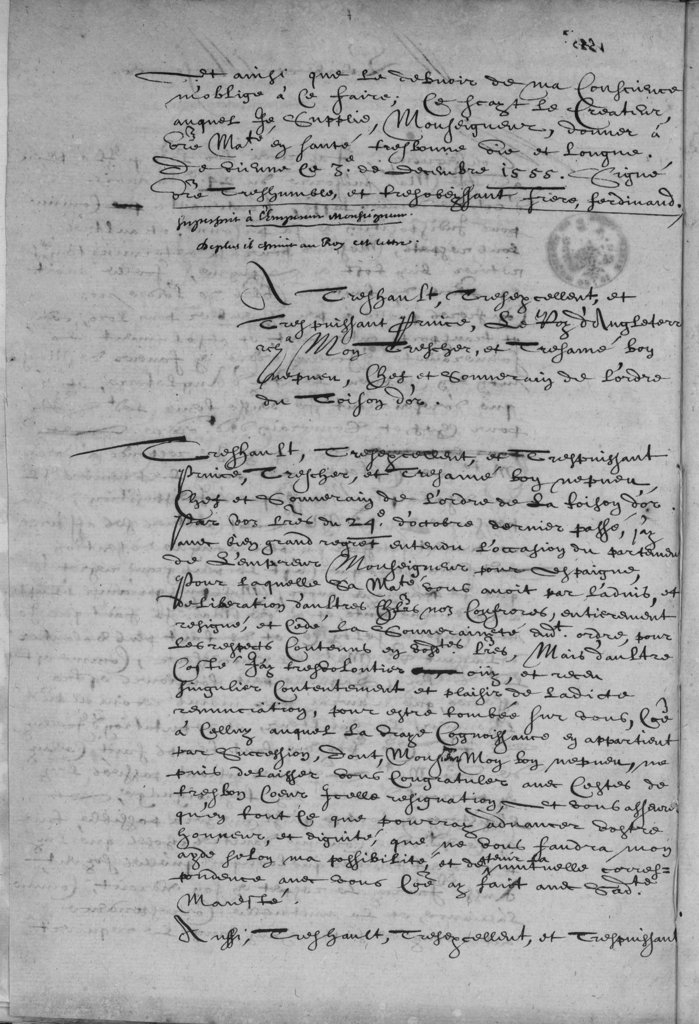 et ainsi que le debuoir de ma Conscience
m'oblige à Ce faire, Ce scayt le Createur,
auquel Je Supplie, Monseigneur, donner à
vr̃e Ma.té en santé tresbonne vie et Longue.
De Vienne Ce 3.e de decembre 1555. Signé
vr̃e Treshumble, et tresobeyssant frere, ferdinand.
superscript à l'Empereur Monseigneur.
De plus il escriuit au Roy cet lettre.
A Treshault, Tresexcellent, et
Trespuissant Prince, Le Roy d'Angleterr
Mon Trescher, et Tresamé bon
nepueu, Chef et Souuerain de l'ordre
du Toison d'or.
Treshault, Tresexcellent, et Trespuissant
Prince, Trescher, et Tresamé bon nepueu,
Chef et Souuerain de l'ordre de La toison d'or.
Par voz lr̃es du 24.e d'octobre dernier passé, j'ay
auec bien grand regret entendu l'occasion du partement
de L'empereur Monseigneur pour espaigne,
Pour laquelle Sa Ma.té vous auoit par l'aduis, et
deliberation d'aultres noz Confreres, entierement
resigné, et Cedé la Souueraineté dud.t ordre, pour
les respects Contenus en lr̃es, Mais d'aultre
Costé Jay tresvolontier ouy, et receu
singulier Contentement et plaisir de ladicte
renunciation, pour estre tombée sur vous, Cõe
à Celluy auquel la vraye Cognoissance en appartient
par Succession, dont, Mon bon nepueu, ne
puis delaisser vous Congratuler auec Cestes de
tresbon Coeur Jcelle resignation, et vous asseure
qu'en tout Ce que pourray aduancer vostre
honneur, et dignité, que ne vous faudra mon
ayde selon ma possibilité, et de tenir la mutuelle corres=
pondence auec vous Cõe ay faict auec Sad.te
Maiesté.
Aussi, Treshault, Tresexcellent, et Trespuissant